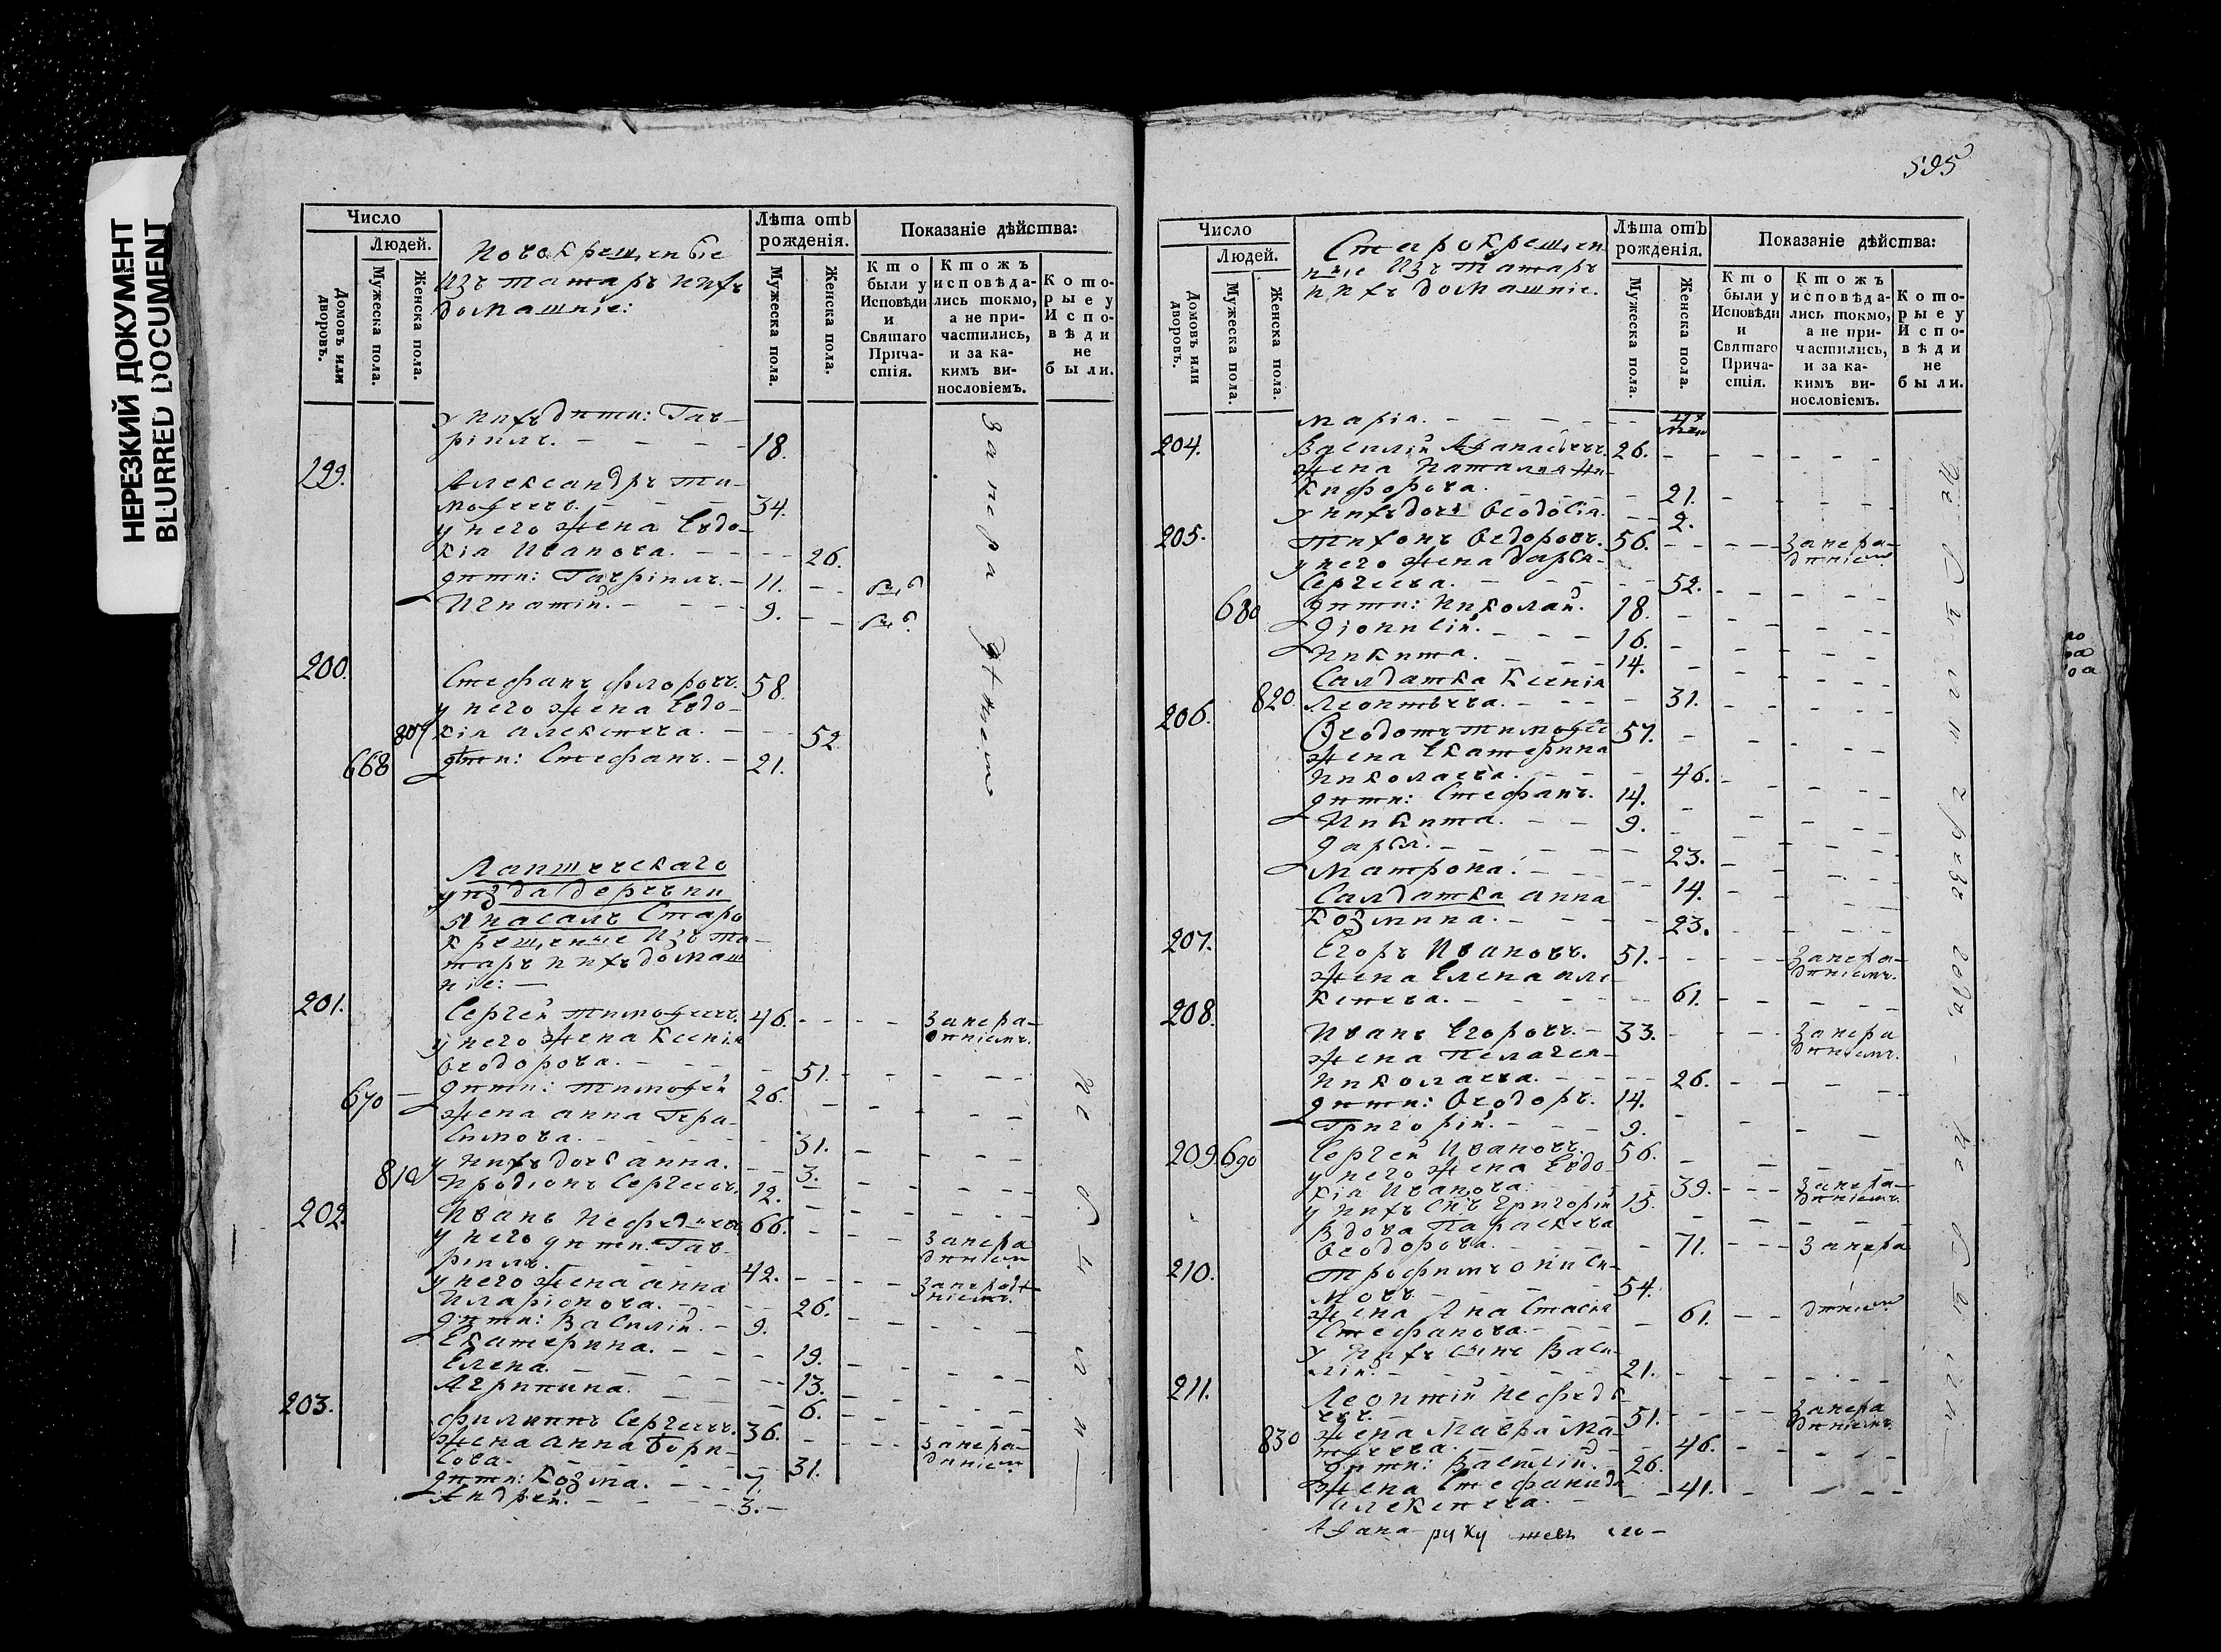 НЕРЕЗКИЙ ДОКУМЕНТ
BLURRED DOCUMENT
Число
Людей.
Домовъ или дворовъ.
Мужеска пола.
Женска пола.
Новокрещенные
изъ татаръ ихъ
домашніе:
Лѣта отъ рожденія.
Мужеска пола.
Женска пола.
Показаніе дѣйства:
Кто были у Исповѣди и Святаго Причастія.
Ктожъ исповѣдались токмо, а не причастились, и за какимъ винословіемъ.
Которые у Исповѣди не были.
у нихъ дѣти: Гав-
ріилъ. 18.
199. Александръ Ти-
моѳеевъ. 34.
у него жена Евдо-
кія Иванова. 26.
дѣти: Гавріилъ. 11.
Игнатій. 9.
200. Стефанъ Флоровъ. 58.
у него жена Евдо-
807 кія Алексѣева. 52.
668 дѣти: Стефанъ. 21.
Лаишевскаго
уѣзда деревни
Старо
крещенные изъ та-
таръ и ихъ домаш
ніе:
201. Сергей Тимоѳеевъ. 46. за нера-
у него жена Ксенія дѣніемъ.
Ѳеодорова. 51.
670 дѣти: Тимоѳей 26.
жена Анна Гера-
симова. 31.
у нихъ дочь Анна. 3.
810 Иродіонъ Сергеевъ. 12.
202. Иванъ Нефедьевъ 66.
у него дѣти: Гав- за нера
ріилъ. 42. дѣніем
у него жена Анна за нерадѣ
Иларіонова. 26. ніемъ.
дѣти: Василій. 9.
Екатерина. 19.
Елена. 13.
Агрипина. 6.
203. Филиппъ Сергеевъ. 36.
жена Анна Бори- за нера-
сова. 31. дѣніем
дѣти: Козма. 7.
Андрей. 3.
за нерадѣніем
не были
595
Число
Людей.
Домовъ или дворовъ.
Мужеска пола.
Женска пола.
Старокрещен
ные изъ татаръ
и ихъ домашніе.
Лѣта отъ рожденія.
Мужеска пола.
Женска пола.
Показаніе дѣйства:
Кто были у Исповѣди и Святаго Причастія.
Ктожъ исповѣдались токмо, а не причастились, и за какимъ винословіемъ.
Которые у Исповѣди не были.
Марія.
204. Василій Аѳанасьевъ. 26.
жена Наталія Ни-
кифорова. 21.
у нихъ дочь Ѳеодосія. 2.
205. Тихонъ Ѳедоровъ. 56. за нера-
у него жена Дарья дѣніем
Сергеева. 52.
680 дѣти: Николай. 18.
Діонисій. 16.
Никита. 14.
Салдатка Ксенія
820. Леонтьева. 31.
206. Ѳеодотъ Тимоѳее 57.
жена Екатерина
Николаева. 46.
дѣти: Стефанъ. 14.
Никита. 9.
Дарья. 23.
Матрона. 14.
Салдатка Анна
Козмина. 23.
207. Егоръ Ивановъ. 51. за нера-
жена Елена Але- дѣніемъ.
ксѣева. 61.
208. Иванъ Егоровъ. 33. за нера
жена Пелагея дѣніемъ.
Николаева. 26.
дѣти: Ѳеодоръ. 14.
Григорій. 9.
209. 690 Сергей Ивановъ. 56.
у него жена Евдо-
кія Иванова. 39. за нера-
у нихъ снъ Григорій 15. дѣніемъ.
Вдова Параскева
Ѳеодорова. 71. за нера
210. ТрофимъОниси-
мовъ 54.
жена Анастасія 61. дѣніем
Стефанова.
у нихъ сынъ Васи-
лій. 21.
211. Леонтій Нефедь
евъ. 51. за нера
жена Мавра Ма- дѣніемъ
830 тѳеева. 46.
дѣти: Василій. 26.
жена Стефанида
Алексѣева. 41.
Аѳана- руку